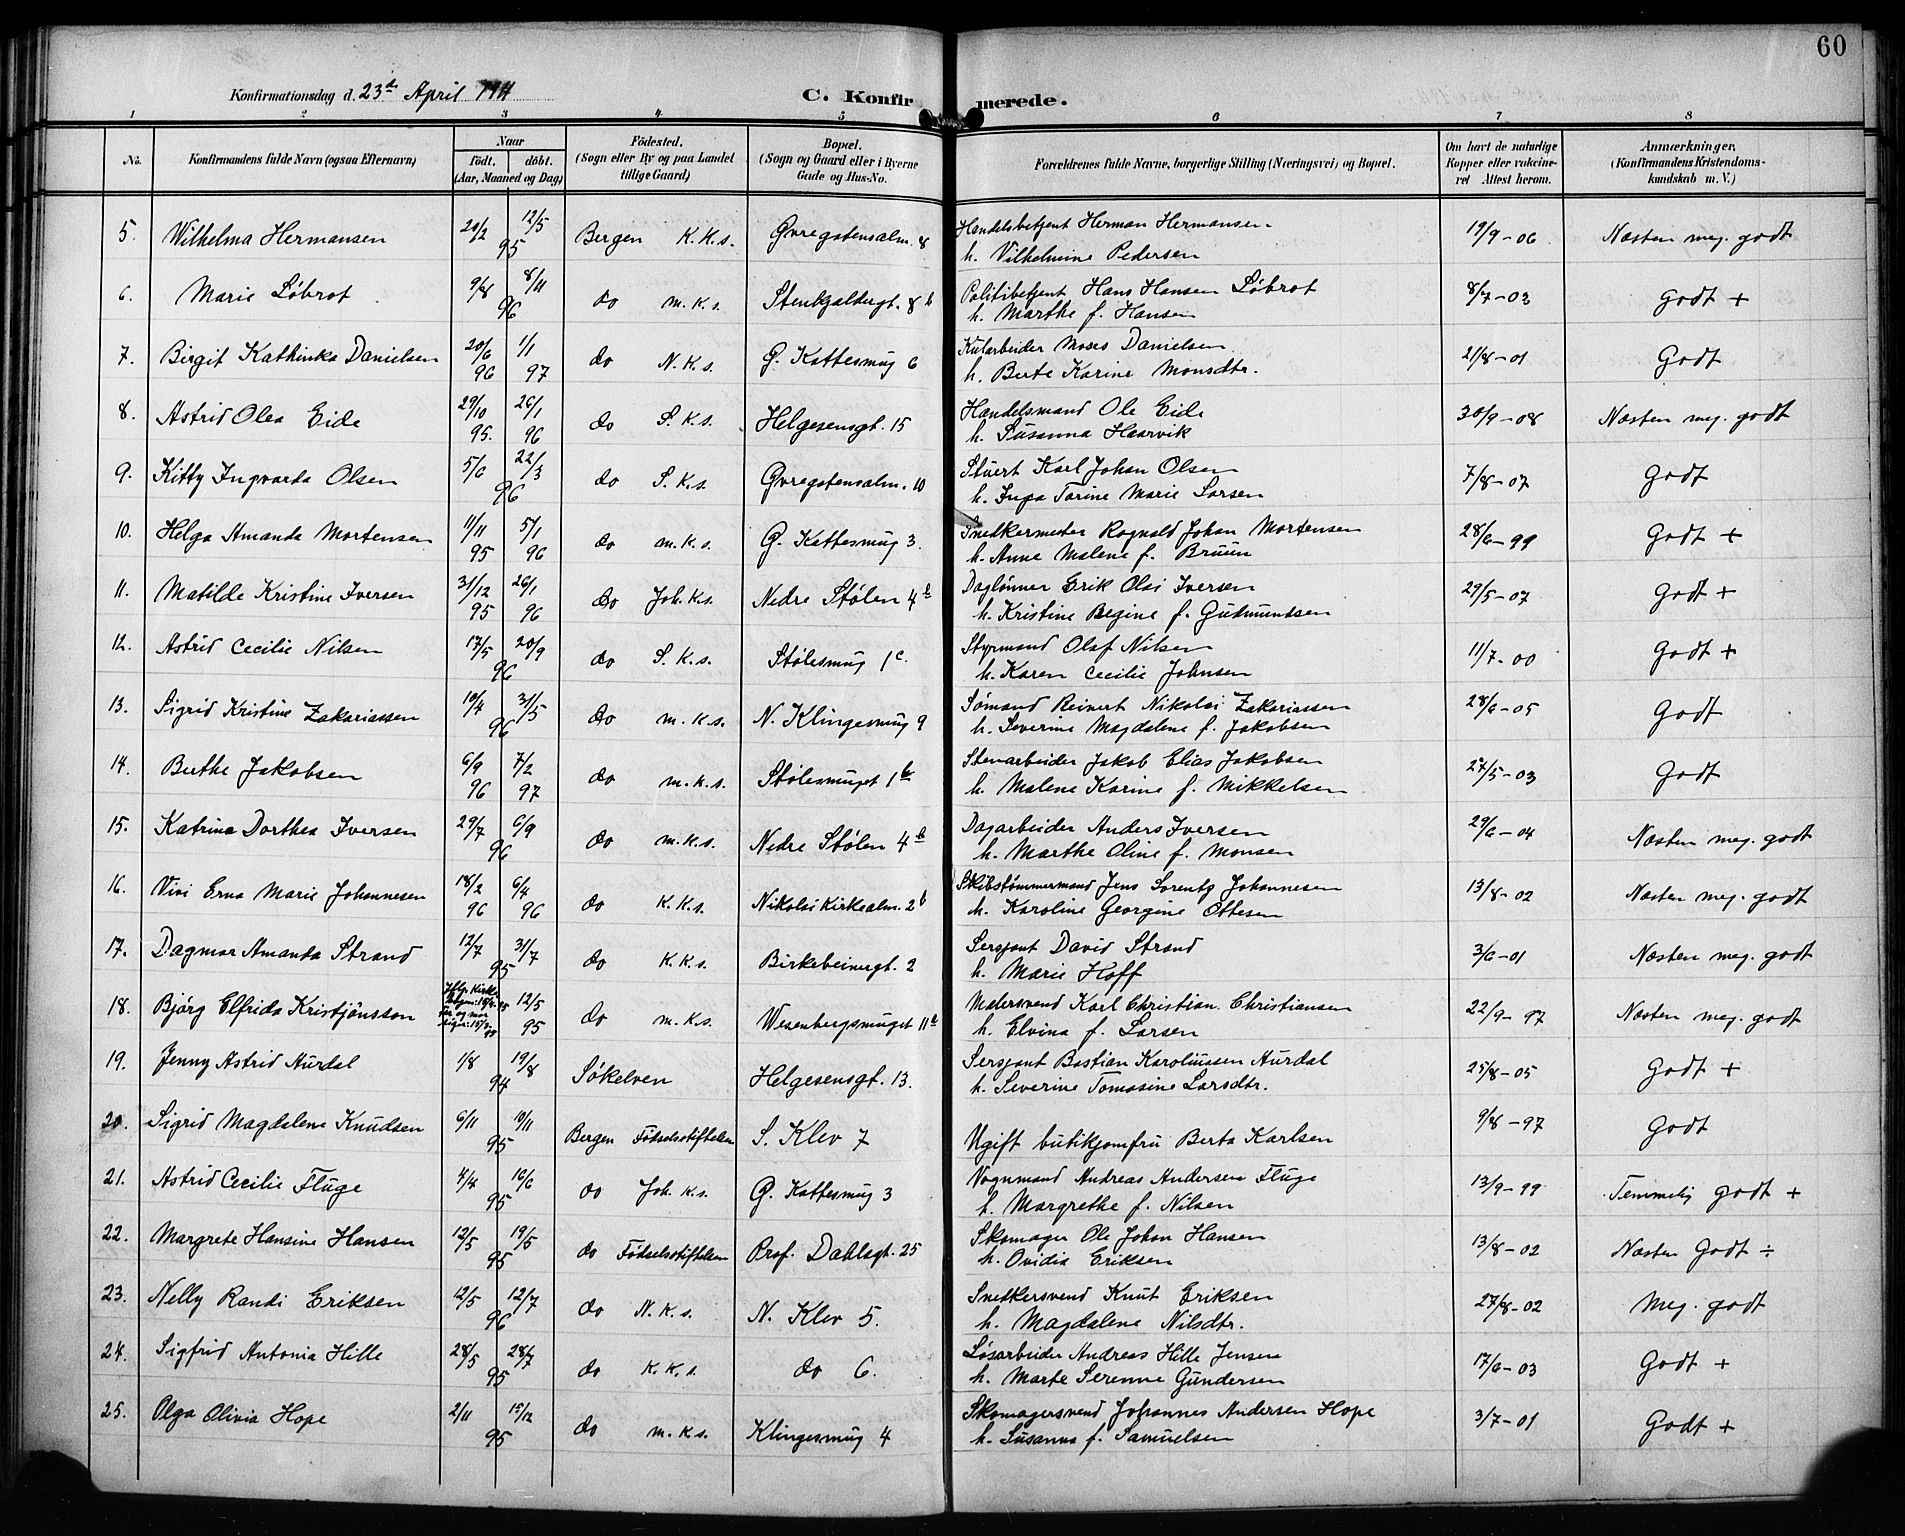 60
Konfirmationsdag d. 23de April 1911 C. Konfirmerede.
1 2 3 4 5 6 7 8
No. Konfirmandens fulde Navn (ogsaa Efternavn) Naar født. døbt. (Aar, Maaned og Dag) Fødested. (Sogn eller By og paa Landet tillige Gaard) Bopæl. (Sogn og Gaard eller i Byerne Gade og Hus-No. Forældrenes fulde Navne, borgerlige Stilling (Næringsvei) og Bopæl. Om havt de naturlige Kopper eller vaccineret Attest herom. Anmærkninger. (Konfirmandens Kristendomskundskab m. V.)
5. Wilhelma Hermansen 20/2 12/5 95 Bergen K.K.s. Øvregstensalm. 8 Handelsbetjent Herman Hermansen 19/9-06 Næsten meg. godt
h. Vilhelmine Pedersen
6. Marie Løbrot 9/8 8/11 96 do m.K.s. Stenkjeldergt. 8b Politibetjent Hans Hansen Løbrot 8/7-03 Godt +
h. Marthe f. Hansen
7. Birgit Kathinka Danielsen 20/6 96 1/1 97 do N.K.s. Ø. Kattesmug 6 Kularbeider Moses Danielsen 21/8-01 Godt
h. Berte Karine Monsdtr.
8. Astrid Olea Eide 29/10 95. 26/1 96 do S.K.s. Helgesensgt. 15 Handelsmand Ole Eide 30/9-08 Næsten meg. godt
h. Susanna Haarvik
9. Kitty Ingvarda Olsen 5/6 22/3 96 do S.K.s. Øvregstensalm. 10 Stuert Karl Johan Olsen 7/8-07 Godt
h. Inga Tarine Marie Larsen
10. Helga Amanda Mortensen 11/11 95 5/1 96 do m.K.s. Ø. Kattesmug 3. Snedkermester Ragnald Johan Mortensen 28/6-99 Godt +
h. Anne Malene f. Bruun
11. Matilde Kristine Iversen 31/12 95 26/1 96 do Joh.K.s. Nedre Stølen 4b Daglønner Erik Olai Iversen 29/5-07 Godt +
h. Kristine Regine f. Gudmundsen
12. Astrid Cecilie Nilsen 17/5 20/9 96 do S.K.s. Stølesmug 1c. Styrmand Olaf Nilsen 11/7-00 Godt +
h. Karen Cecilie Johnsen
13. Sigrid Kristine Zakariassen 19/4 31/5 96 do m.K.s. N. Klingesmug 9 Sømand Reinert Nikolai Zakariassen 28/6-05 Godt
h. Severine Magdalene f. Jakobsen
14. Berthe Jakobsen 6/9 96 7/2 97 do m.K.s. Stølesmuget 1b Stenarbeider Jakob Elias Jakobsen 27/5-03 Godt
h. Malene Karine f. Mikkelsen
15. Katrina Dorthea Iversen 29/7 6/9 96 do m.K.s. Nedre Stølen 4b Dagarbeider Anders Iversen 29/6-04 Næsten meg. godt
h. Marthe Oline f. Monsen
16. Vivi Erna Marie Johannesen 18/2 96 6/4 96 do K.K.s. Nikolai Kirkealm. 2b Skibstømmermand Jens Lorentz Johannesen 13/8-02 Næsten meg. godt
h. Karoline Georgine Ottesen
17. Dagmar Amanda Strand 12/7 31/7 95 do K.K.s. Birkebeinergt. 2 Sersjant David Strand 3/6-01 Næsten meg. godt
h. Marie Hoff
18. Bjørg Elfrida Kristjónsson 12/5 95 do m.K.s. Wesenbergsmuget 11b Malersvend Karl Christian Christiansen 22/9-97 Næsten meg. godt
h. Elvina f. Larsen
19. Jenny Astrid Aurdal 1/8 19/8 94 Søkelven Helgesensgt. 13. Sersjant Bastian Karoliussen Aurdal 25/8-05 Godt +
h. Severine Tomasine Larsdtr.
20. Sigrid Magdalene Knudsen 6/11 10/11 95 Bergen Fødselsstiftelsen S. Klev 7 Ugift butikjomfru Berta Karlsen 9/8-97 Godt
21. Astrid Cecilie Fluge 4/4 16/6 95 do Joh.K.s. Ø. Kattesmug 3 Vognmand Andreas Andersen Fluge 13/9-99 Temmelig godt +
h. Margrethe f. Nilsen
22. Margrete Hansine Hansen 12/5 19/5 95 do Fødselsstiftelsen Prof. Dahlsgt. 25 Skomager Ole Johan Hansen 13/8-02 Næsten Godt ÷
h. Ovidia Eriksen
23. Nelly Randi Eriksen 12/5 12/7 96 do N.K.s. N. Klev 5. Snedkersvend Knut Eriksen 27/8-02 Meg. godt
h. Magdalene Nilsdtr.
24. Sigfrid Antonia Hille 28/5 28/7 95 do K.K.s do 6. Løsarbeider Andreas Hille Jensen 17/6-03 Godt +
h. Marte Serenne Gundersen
25. Olga Olivia Hope 2/11 15/12 95 do m.K.s. Klingesmug 4 Skomagersvend Johannes Andersen Hope 3/7-01 Godt +
h. Susanna f. Samuelsen